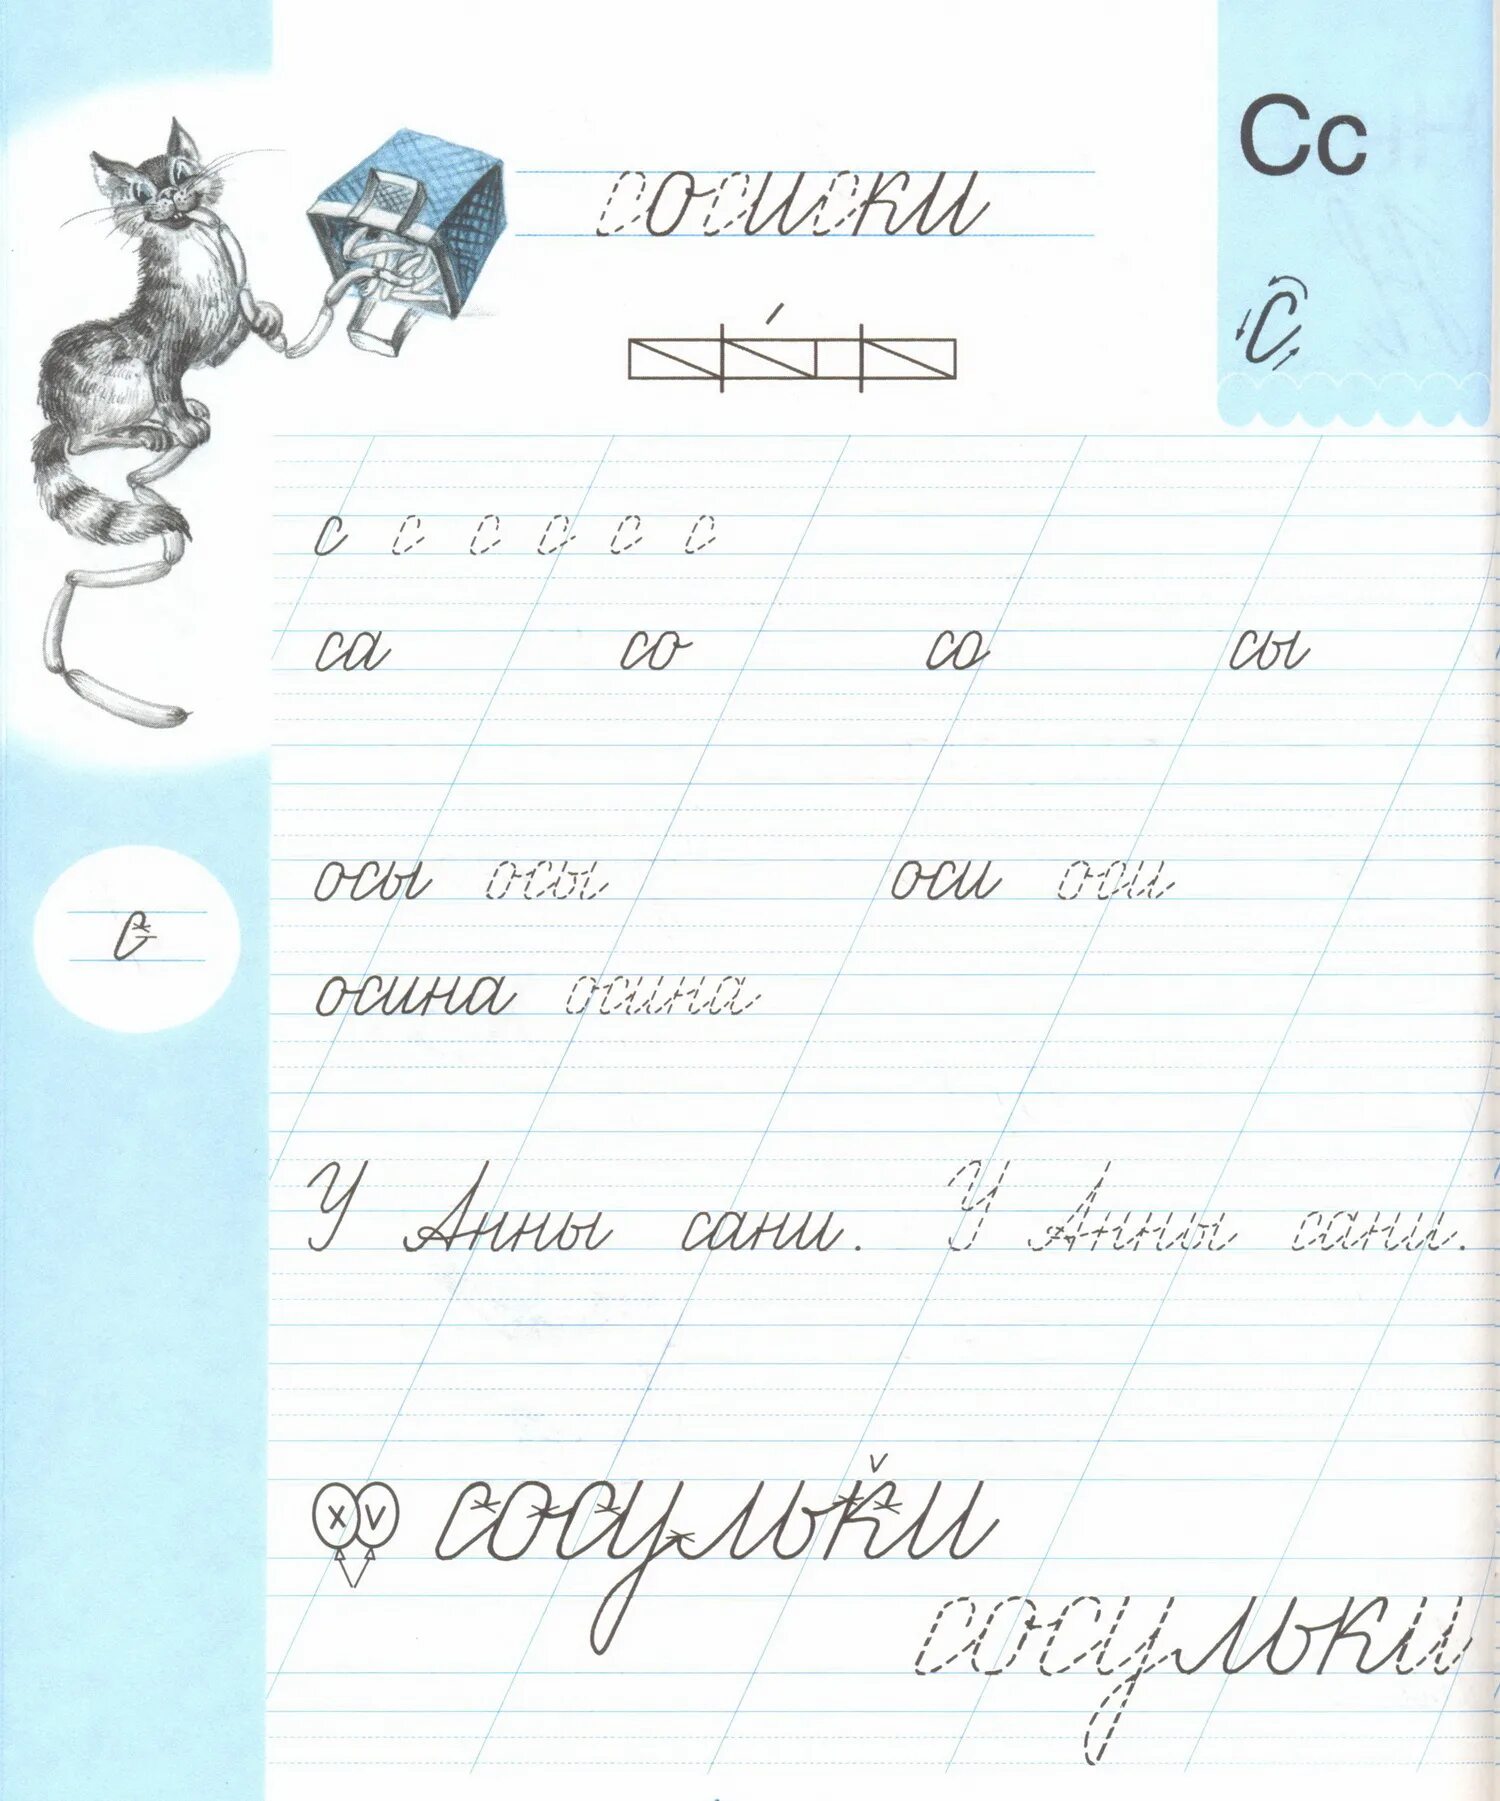 сосиски
Сс
с
с с с с с с
са со со сы
осы осы оси оси
с
осина осина
У Анны сани. У Анны сани.
x v сосульки
сосульки